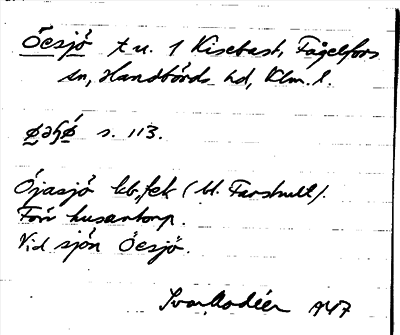 Öesjö t u. 1 Kisebast, Fågelfors
sn, Handbörds hd, Klm. l.
s. 113.
Öjasjö kb, fek (bl. Farshult).
Förr husartorp.
Vid sjön Öesjö.
Ivar Modéer 1947